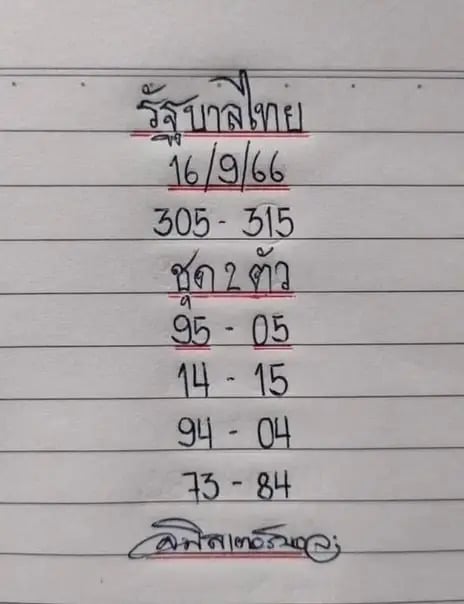 รัฐบาลไทย
16/9/66
305 - 315
ชุด 2 ตัว
95 - 05
14 - 15
94 - 04
73 - 84